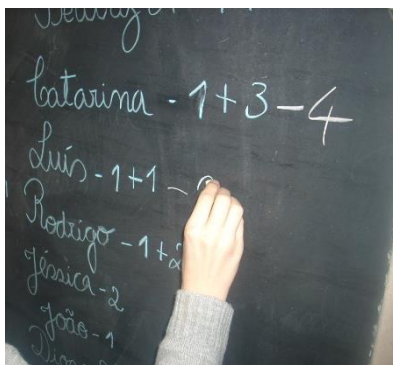 Catarina - 1+3 - 4
Luís - 1+1 -
Rodrigo - 1+2
Jéssica - 2
João - 1